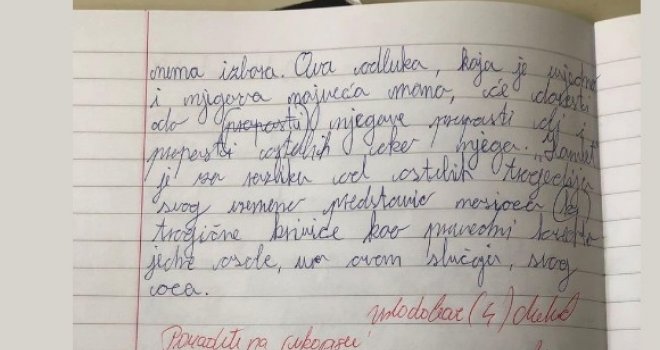 nema izbora. Ova odluka, koja je ujedno
i njegova najveća mana, će dovesti
do propasti njegove propasti i
propasti ostalih oko njega. "Hamlet"
je za razliku od ostalih tragedija
svog vremena predstavio
tragične krivice kao pravedni
jedne osobe, u ovom slučaju, svog
oca.
vrlodobar (4)
Poraditi na rukopisu